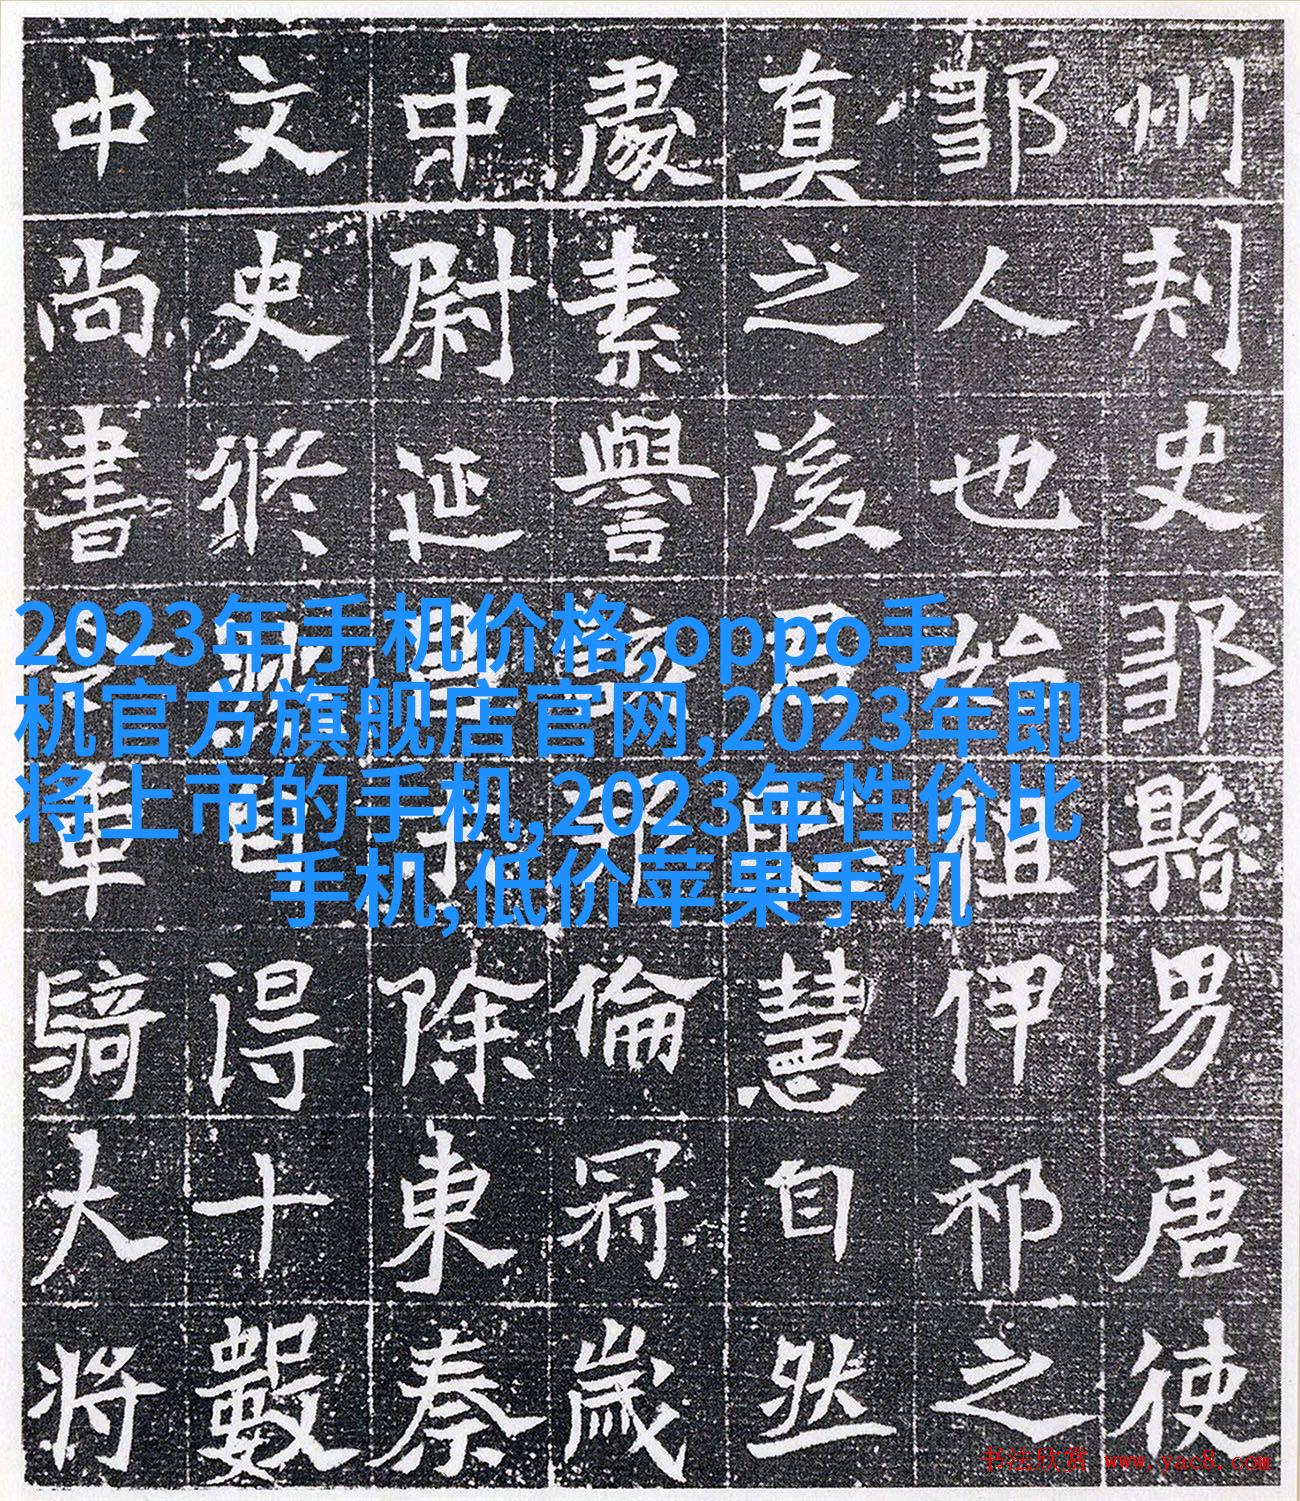 州刾史鄒縣男唐使
鄒人也始祖伊祁之
真之後慧自然
處素譽倫冠歲
中尉延昌除東秦
文史修得十數
中尚書令車騎大將
2023年手机价格,oppo手
机官方旗舰店官网,2023年即
将上市的手机,2023年性价比
手机,低价苹果手机
书法欣赏 www.yac8.com